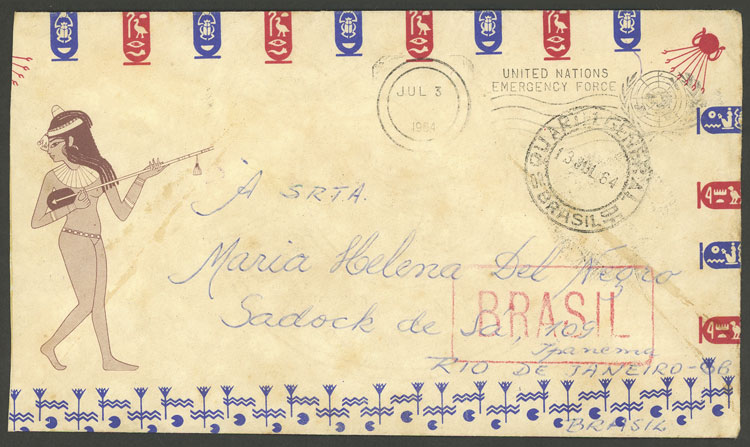 UNITED NATIONS
EMERGENCY FORCE
JUL 3
1964
QUARTEL GENERAL
13 JUL 64
BRASIL
À SRTA.
Maria Helena Del Negro
Sadock de Sá, 109
BRASIL
Ipanema
RIO DE JANEIRO-GB
BRASIL